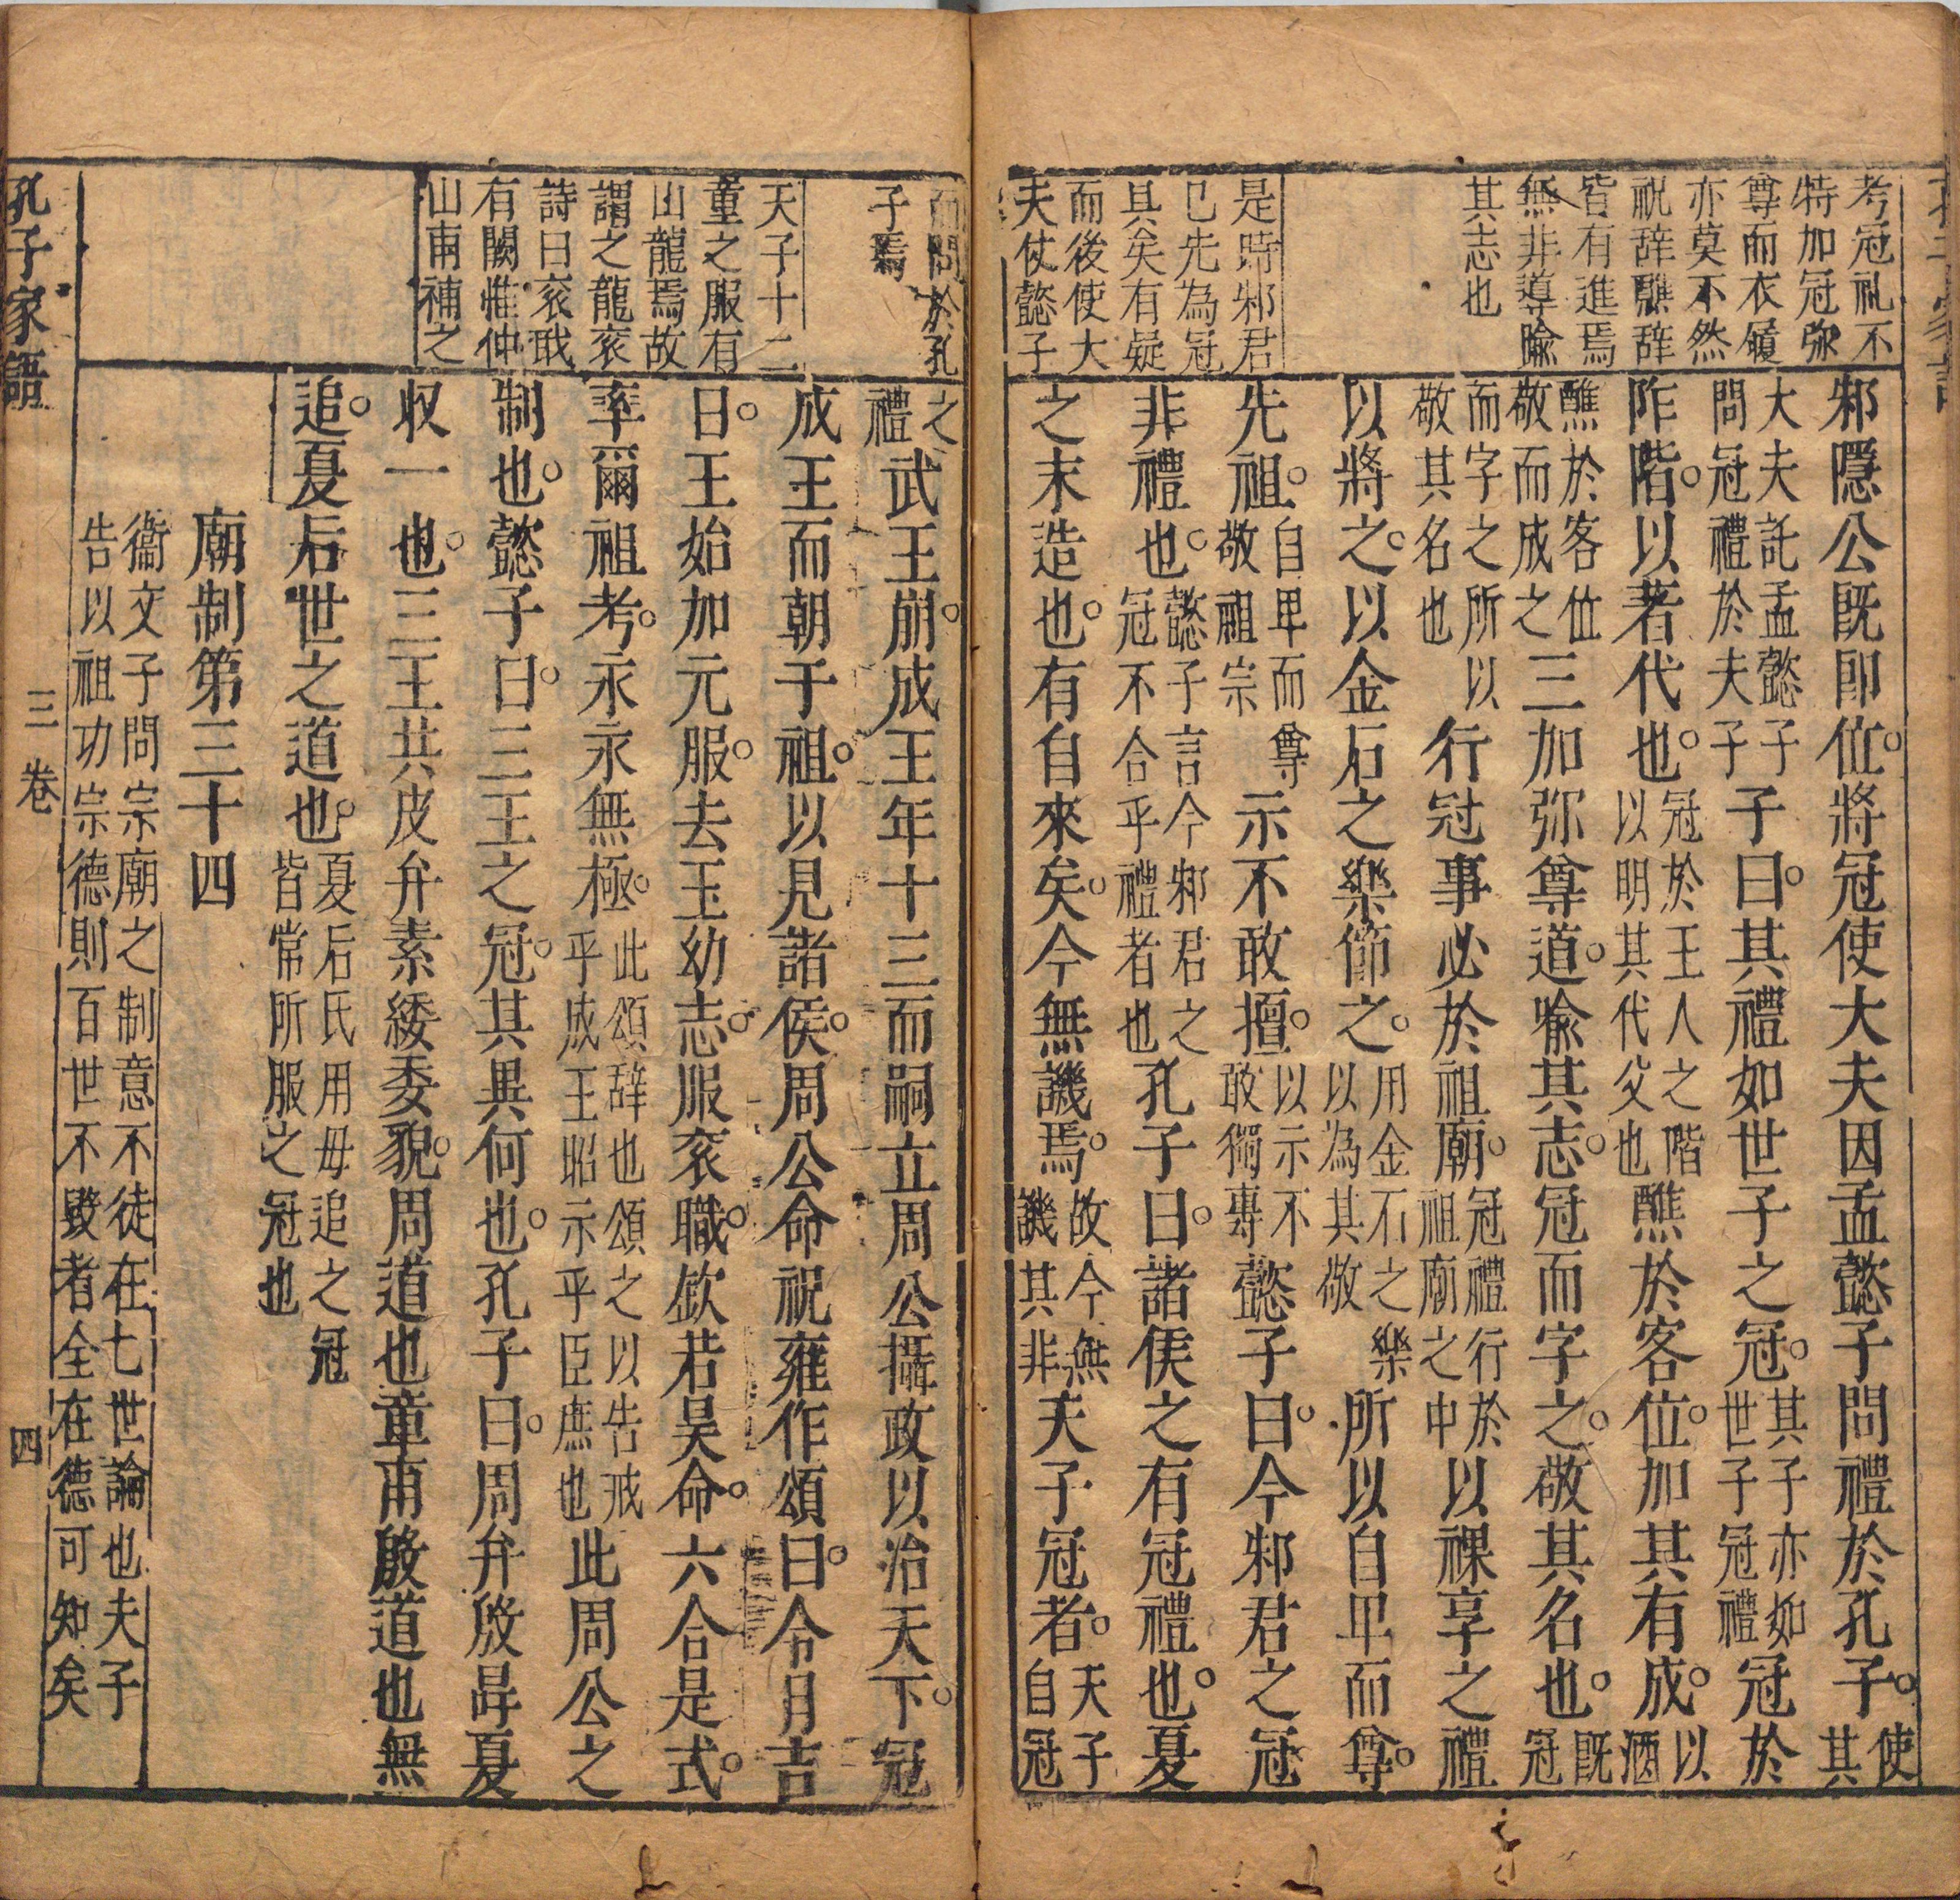 考冠礼不
特加冠弥
尊而衣履
亦莫不然
祝辞醮辞
皆有進焉
無非導喻
其志也
是時邾君
已先為冠
具矣有疑
而後使大
夫使懿子
邾隱公既即位。將冠使大夫因孟懿子問禮於孔子。使其
大夫託孟懿子問冠禮於夫子子曰。其禮如世子之冠。其子亦如世子冠禮冠於
阼階。以著代也。冠於王人之階以明其代父也醮於客位。加其有成。以酒
醮於客位敬而成之三加弥尊道。喻其志。冠而字之。敬其名也。既冠
而字之所以敬其名也行冠事必於祖廟。冠禮行於祖廟之中以祼享之禮
以將之。以金石之樂節之。用金石之樂以為其敬所以自卑而尊。
先祖。自卑而尊敬祖宗示不敢擅。以示不敢獨專懿子曰。今邾君之冠
非禮也。懿子言今邾君之冠不合乎禮者也孔子曰。諸侯之有冠禮也。夏
之末造也。有自來矣。今無譏焉。故今無譏其非天子冠者。天子自冠
而問於孔
子焉
天子十二
童之服有
山龍焉故
謂之龍衮
詩曰衮戠
有闕惟仲
山甫補之
之禮武王崩。成王年十三而嗣立周公攝政以治天下。冠
成王而朝于祖。以見諸侯。周公命祝雍作頌曰。令月吉
日。王始加元服。去王幼志。服衮職。欽若昊命。六合是式。
率爾祖考。永永無極。此頌辞也頌之以告戒乎成王昭示乎臣庶也此周公之
制也。懿子曰。三王之冠。其異何也。孔子曰。周弁殷冔夏
収一也。三王共皮弁素緌委貌。周道也章甫殷道也無
追。夏后世之道也。夏后氏用毋追之冠皆常所服之冠也
廟制第三十四
衞文子問宗廟之制意不徒在七世論也夫子
告以祖功宗德則百世不毀者全在德可知矣
孔子家語
三卷
四